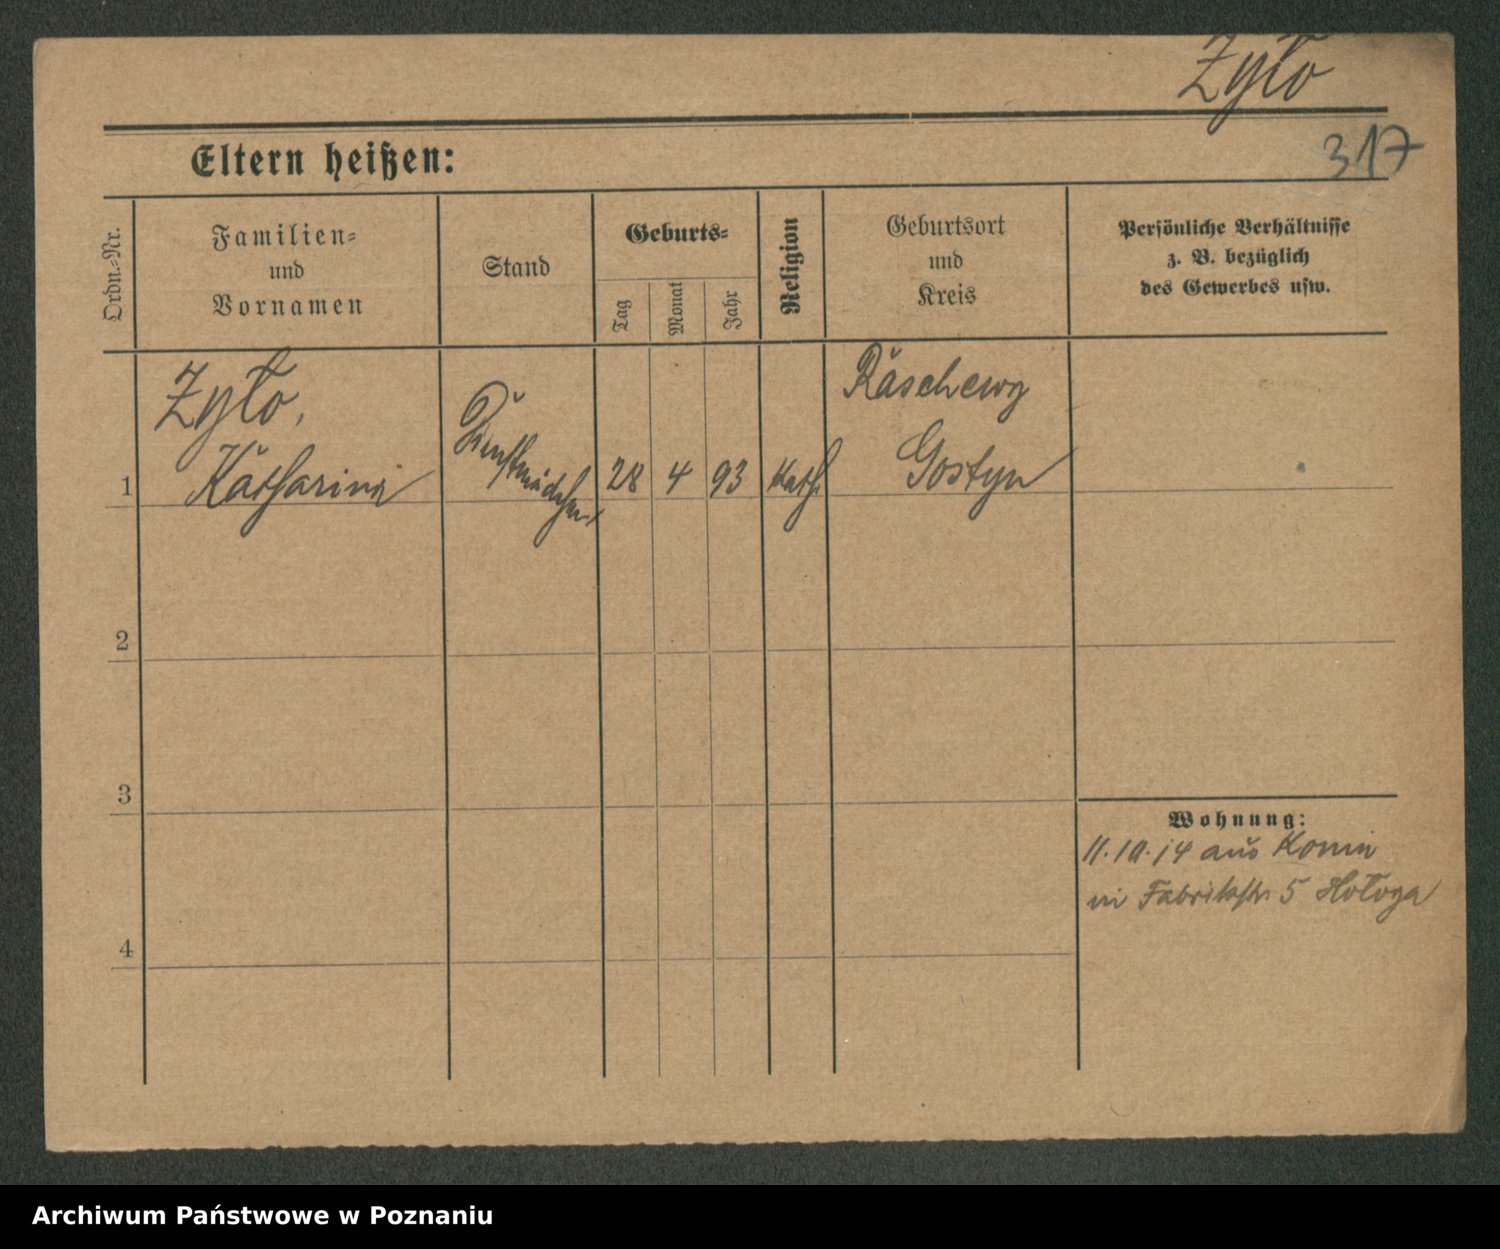 Zyło
317
Eltern heißen:
Ordn.-Nr.
Familien-
und
Vornamen
Stand
Geburts-
Tag
Monat
Jahr
Religion
Geburtsort
und
Kreis
Persönliche Verhältnisse
z. B. bezüglich
des Gewerbes usw.
1
Zyło,
Katharina
Dienstmädchen
28
4
93
kath.
Raschewy
Gostyn
2
3
4
Wohnung:
11.10.14 aus Konin
in Fabrikstr. 5 Hołoga
Archiwum Państwowe w Poznaniu